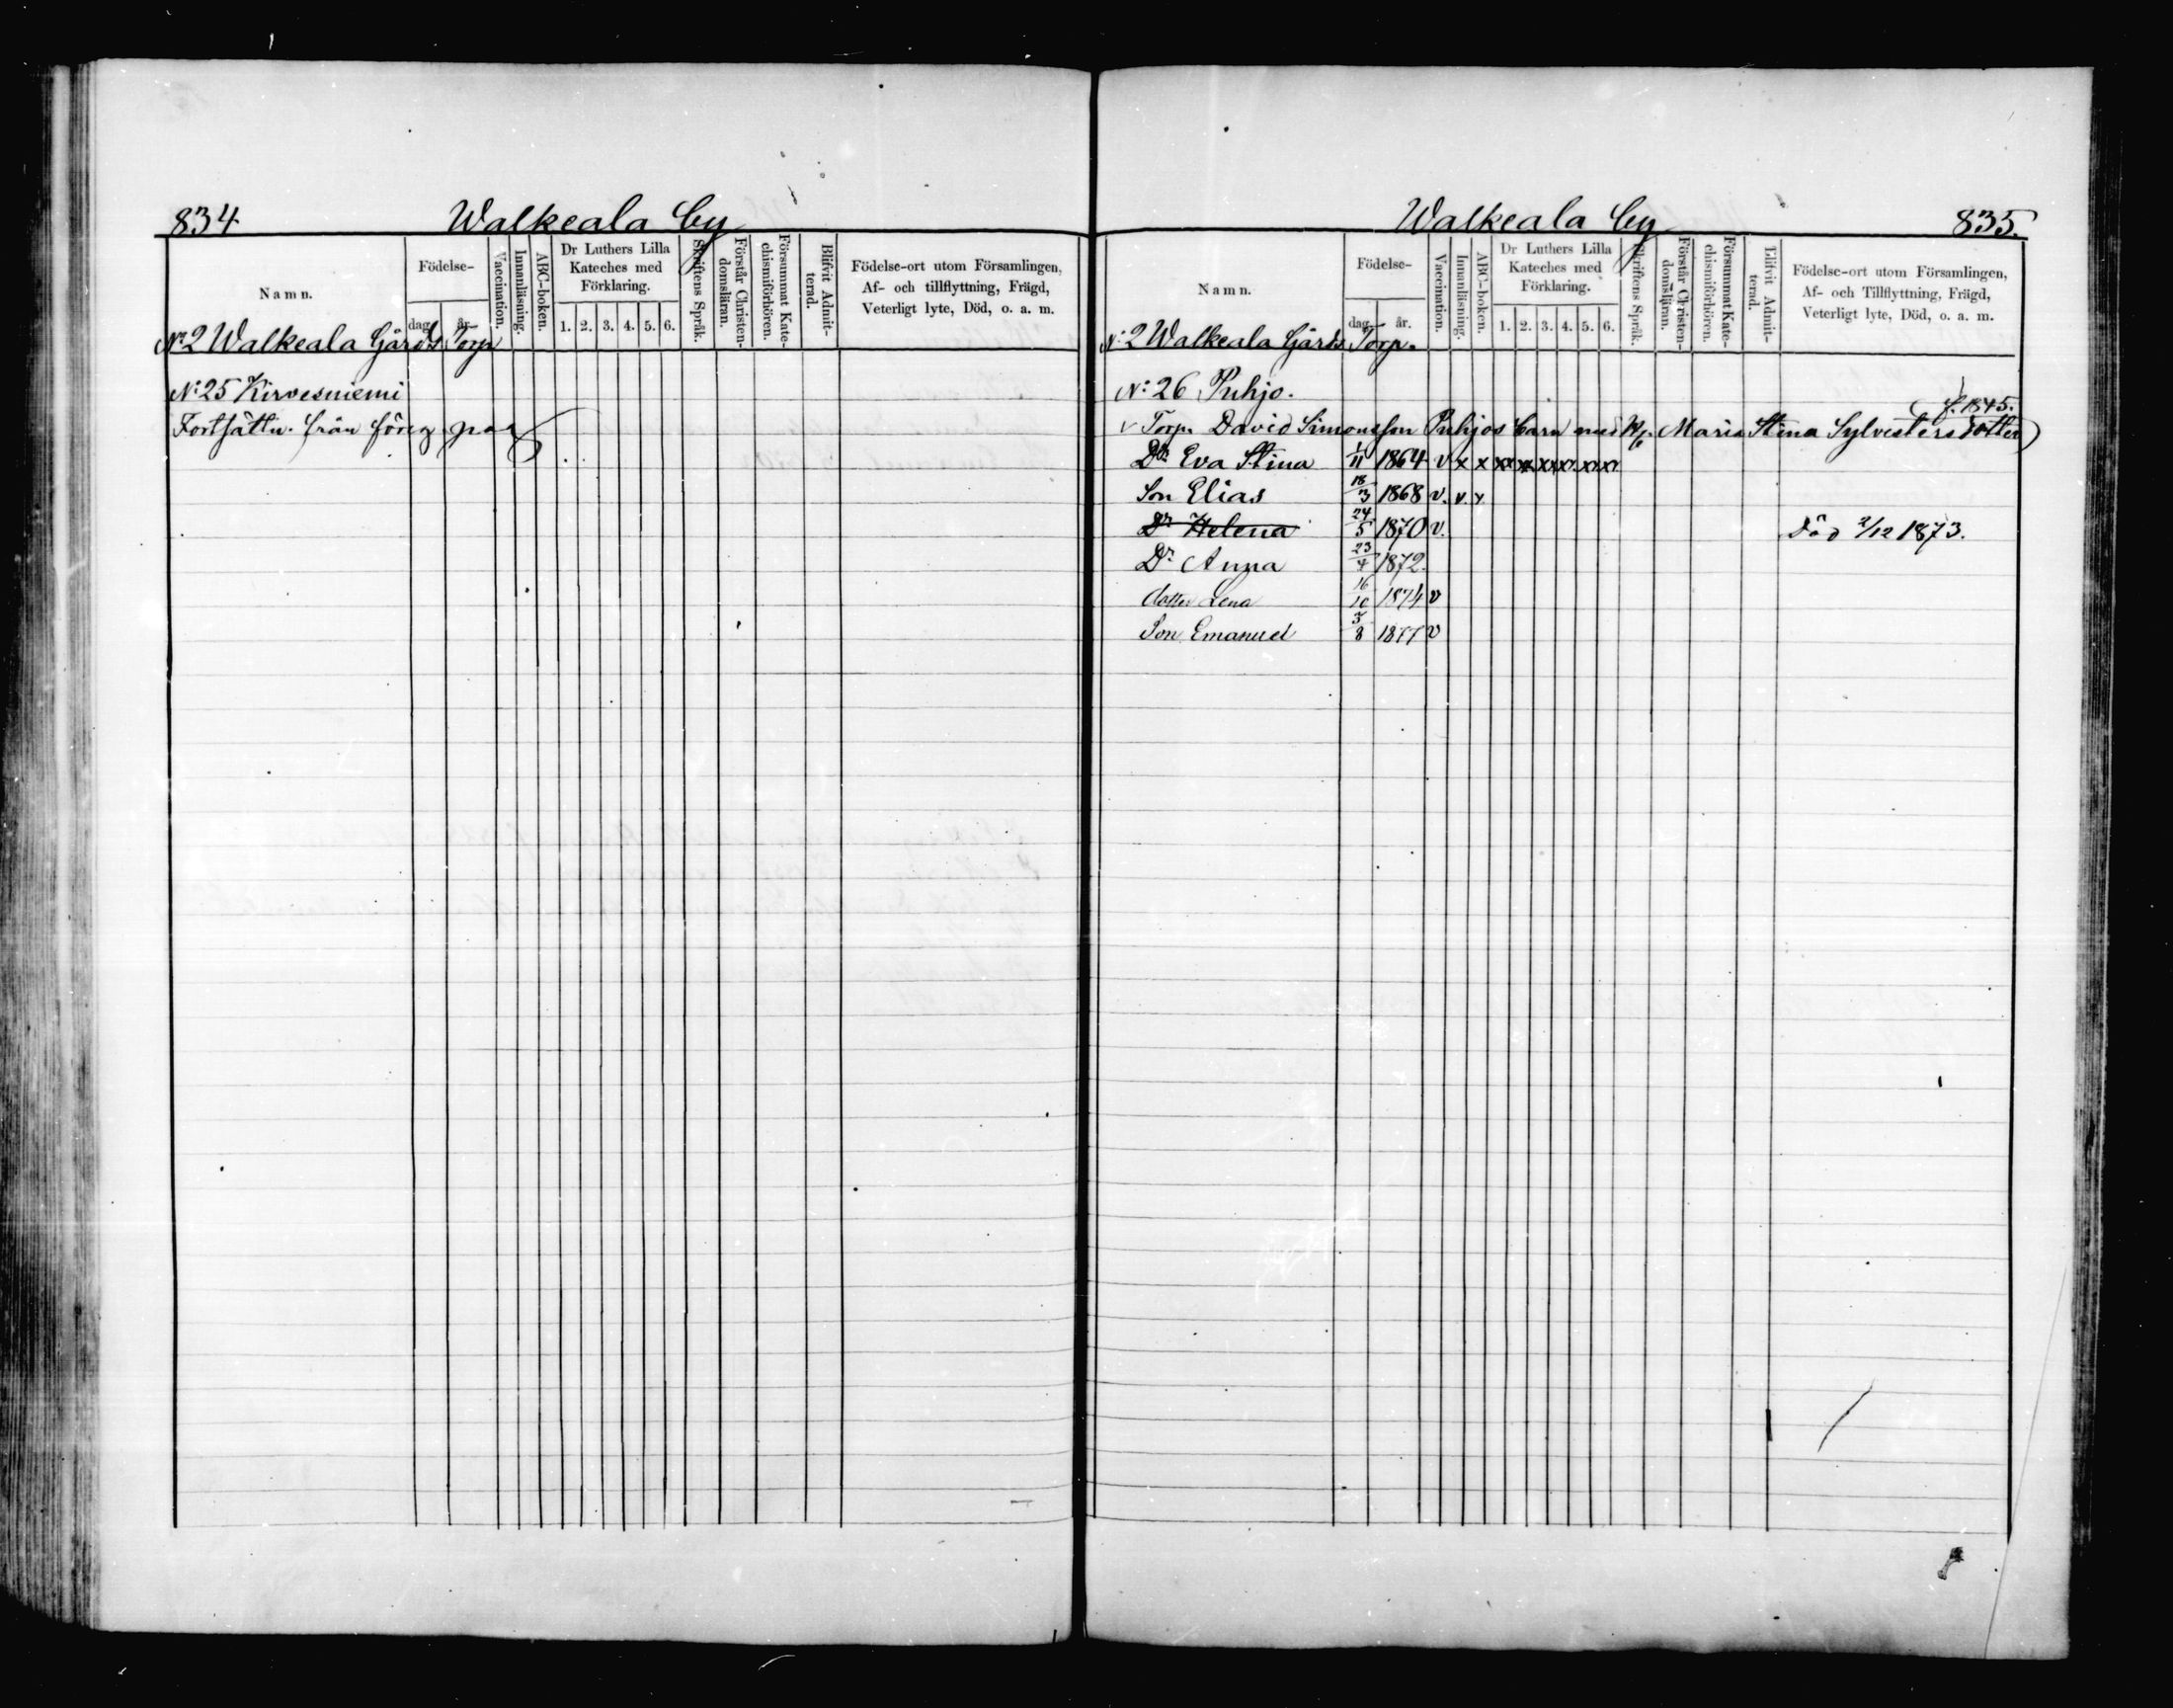 834 Walkeala by
Namn. Födelse- dag. år. Vaccination. Innanläsning. ABC-boken. Dr Luthers Lilla Kateches med Förklaring. 1. 2. 3. 4. 5. 6. Skriftens Språk. Förstår Christendomsläran. Försummat Katechismiförhören. Blifvit Admitterad. Födelse-ort utom Församlingen, Af- och tillflyttning, Frägd, Veterligt lyte, Död, o. a. m.
No 2 Walkeala Gårds Torp
No: 25 Kirvesniemi
Fortsättn. från föreg. pag
Walkeala by 835.
Namn. Födelse- dag. år. Vaccination. Innanläsning. ABC-boken. Dr Luthers Lilla Kateches med Förklaring. 1. 2. 3. 4. 5. 6. Skriftens Språk. Förstår Christendomsläran. Försummat Katechismiförhören. Blifvit Admitterad. Födelse-ort utom Församlingen, Af- och Tillflyttning, Frägd, Veterligt lyte, Död, o. a. m.
No: 2 Walkeala Gårds Torp.
No: 26 Puhjo.
f. 1845.
v Torp. David Simonsson Puhjos barn med H. Maria Stina Sylvestersdotter)
Dr Eva Stina 1/11 1864 v x x xx xx xx xx xx xx
Son Elias 18/3 1868 v. v. v
Dr Helena 24/5 1870 v. Död 2/12 1873.
Dr Anna 23/4 1872.
dotter Lena 16/10 1874 v
Son Emanuel 3/8 1877 v